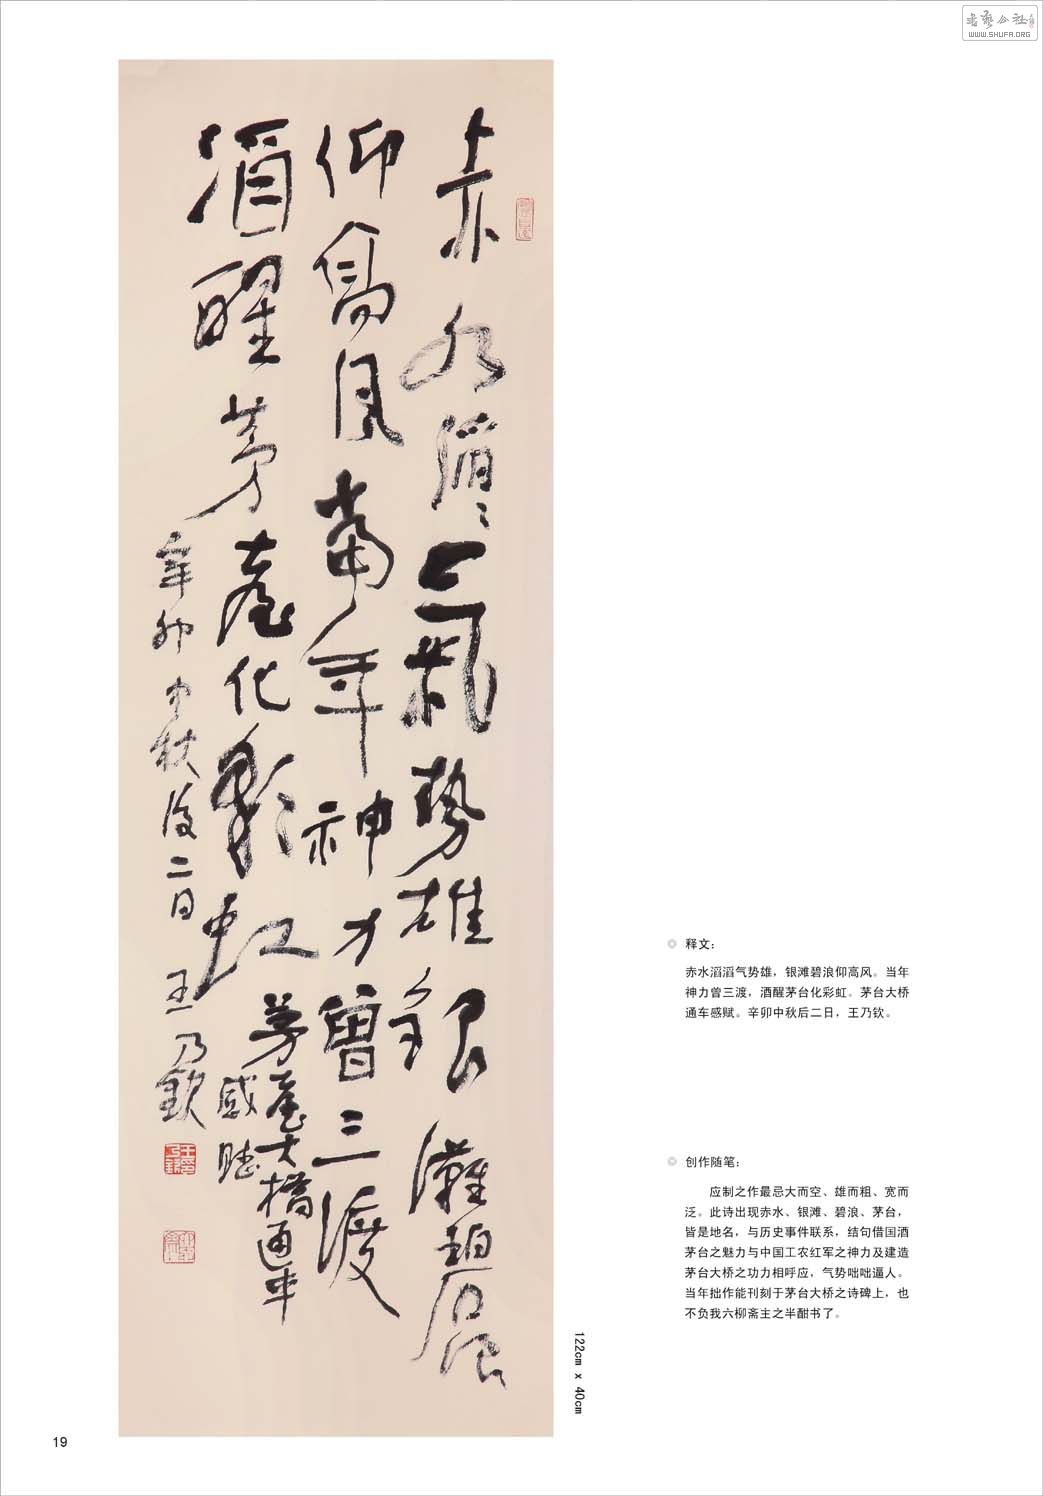 书艺公社
WWW.SHUFA.ORG
赤水滔〻气勢雄銀灘碧浪
仰高風當年神力曾三渡
酒醒茅臺化彩虹
茅臺大橋通車
感賦
辛卯中秋後二日 王乃欽
释文：
赤水滔滔气势雄，银滩碧浪仰高风。当年
神力曾三渡，酒醒茅台化彩虹。茅台大桥
通车感赋。辛卯中秋后二日，王乃钦。
创作随笔：
应制之作最忌大而空、雄而粗、宽而
泛。此诗出现赤水、银滩、碧浪、茅台，
皆是地名，与历史事件联系，结句借国酒
茅台之魅力与中国工农红军之神力及建造
茅台大桥之功力相呼应，气势咄咄逼人。
当年拙作能刊刻于茅台大桥之诗碑上，也
不负我六柳斋主之半酣书了。
122cm x 40cm
19